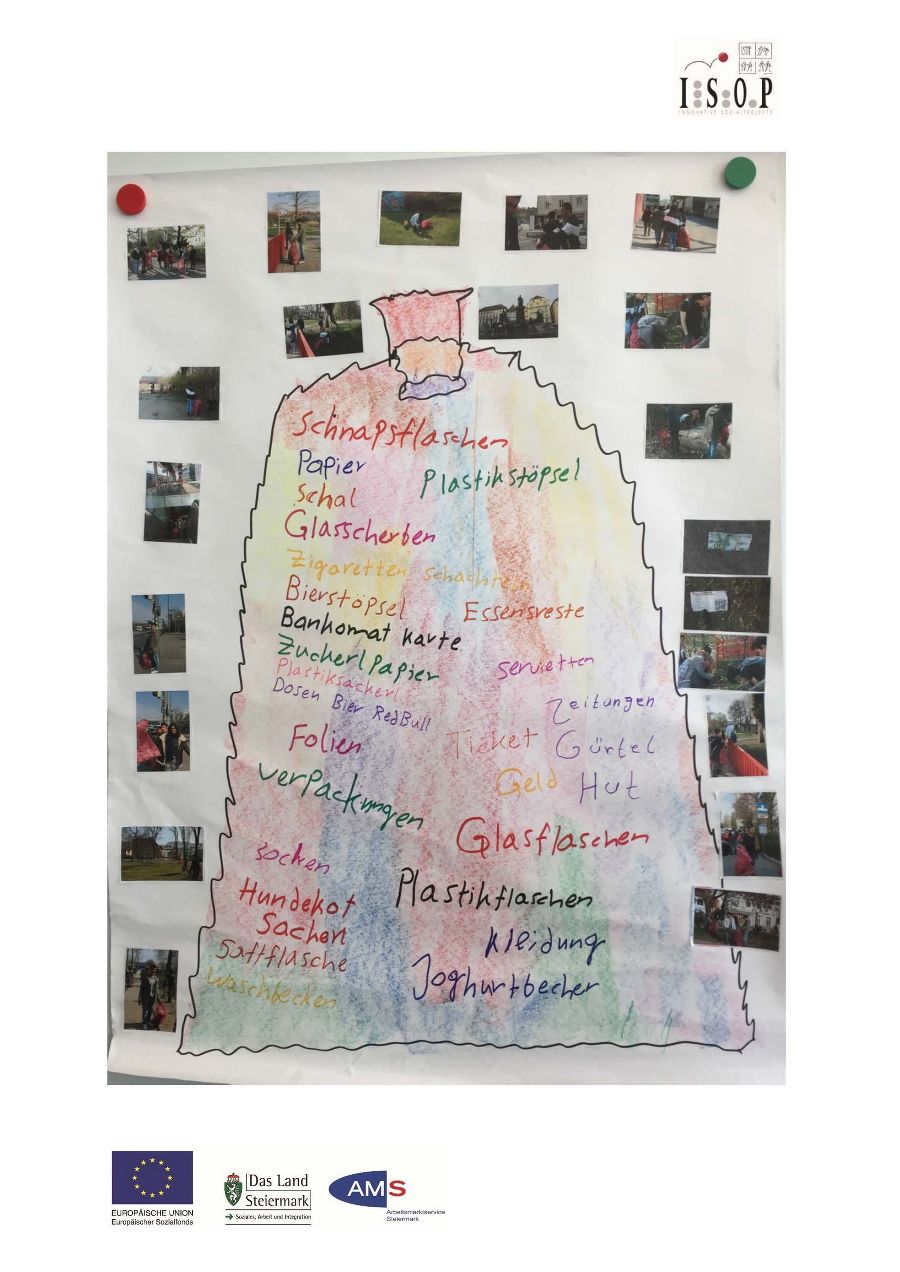 I:S:O.P
INNOVATIVE SOZIALPROJEKTE
Schnapsflaschen
Papier
Plastikstöpsel
Schal
Glasscherben
Zigaretten schachteln
Bierstöpsel
Essensreste
Bankomat karte
Zuckerlpapier
Servietten
Plastiksackerl
Dosen Bier RedBull
Zeitungen
Folien
Ticket
Gürtel
Verpackungen
Geld
Hut
Glasflaschen
Socken
Plastikflaschen
Hundekot
Sachen
Kleidung
Saftflasche
Joghurtbecher
Waschbecken
EUROPÄISCHE UNION
Europäischer Sozialfonds
Das Land
Steiermark
→ Soziales, Arbeit und Integration
AMS
Arbeitsmarktservice
Steiermark